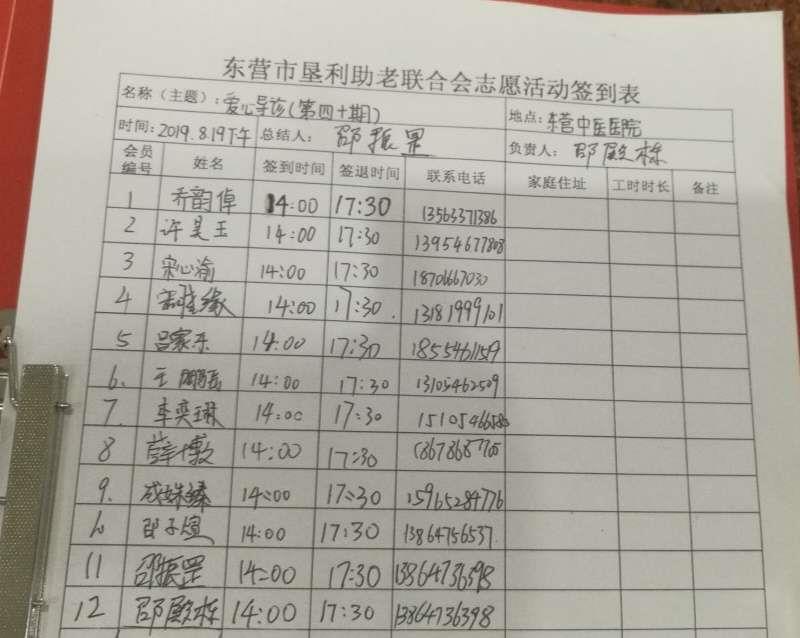 东营市垦利助老联合会志愿活动签到表
名称(主题): 爱心导诊(第四十期) 地点: 东营中医医院
时间: 2019.8.19下午 总结人: 邵振罡 负责人: 邵殿栋
会员编号 姓名 签到时间 签退时间 联系电话 家庭住址 工时时长 备注
1 乔韵倬 14:00 17:30 13563371386
2 许昊玉 14:00 17:30 13954677808
3 宋心渝 14:00 17:30 18701667030
4 14:00 17:30 13181999101
5 吕家乐 14:00 17:30
6. 王鹏磊 14:00 17:30 13105462509
7. 李奕琳 14:00 17:30
8 薛博 14:00 17:30
9. 成姝臻 14:00 17:30 15965284776
10 邵子煊 14:00 17:30 13864756537
11 邵振罡 14:00 17:30 13864736398
12 邵殿栋 14:00 17:30 13864736398